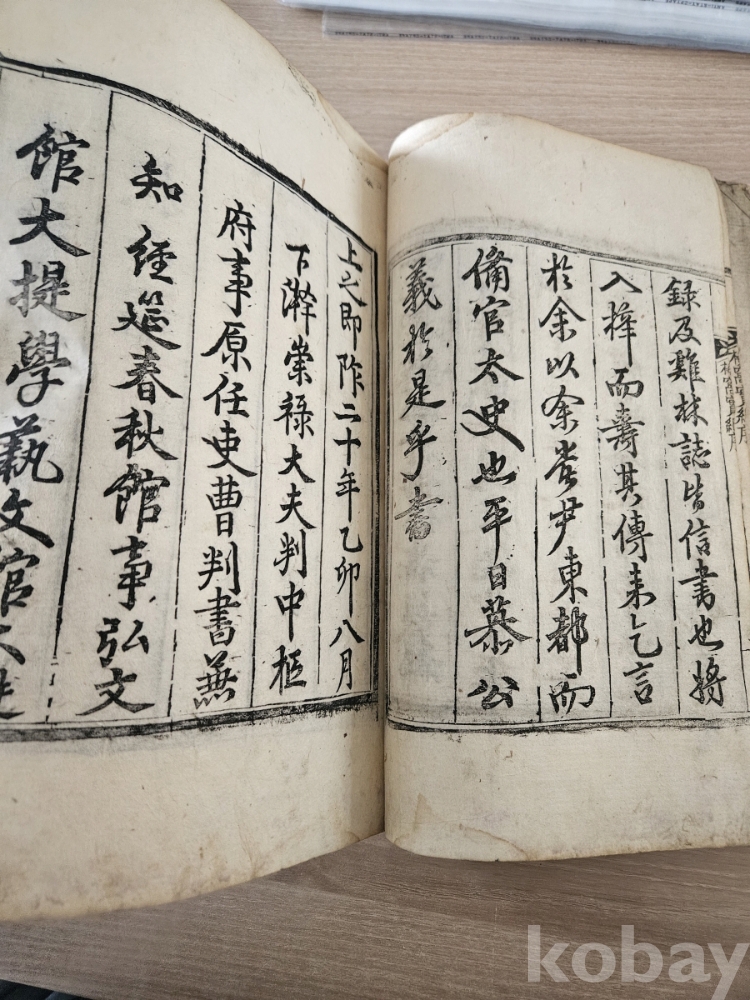 錄及雞林誌皆信書也將
入榟而壽其傳来乞言
於余以余嘗尹東都而
備官太史也平日慕公
義於是乎書
上之即阼二十年乙卯八月
下澣崇祿大夫判中樞
府事原任吏曹判書兼
知 經筵春秋館事弘文
館大提學藝文館大提
kobay